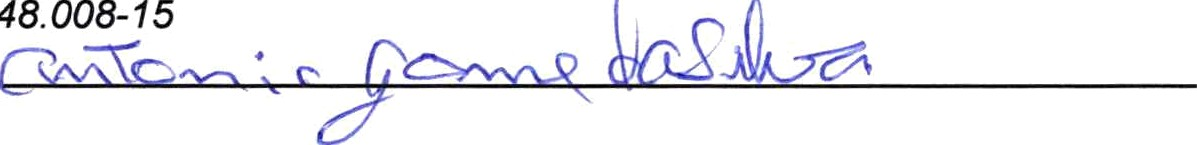 48.008-15
Antonio Gome da Silva